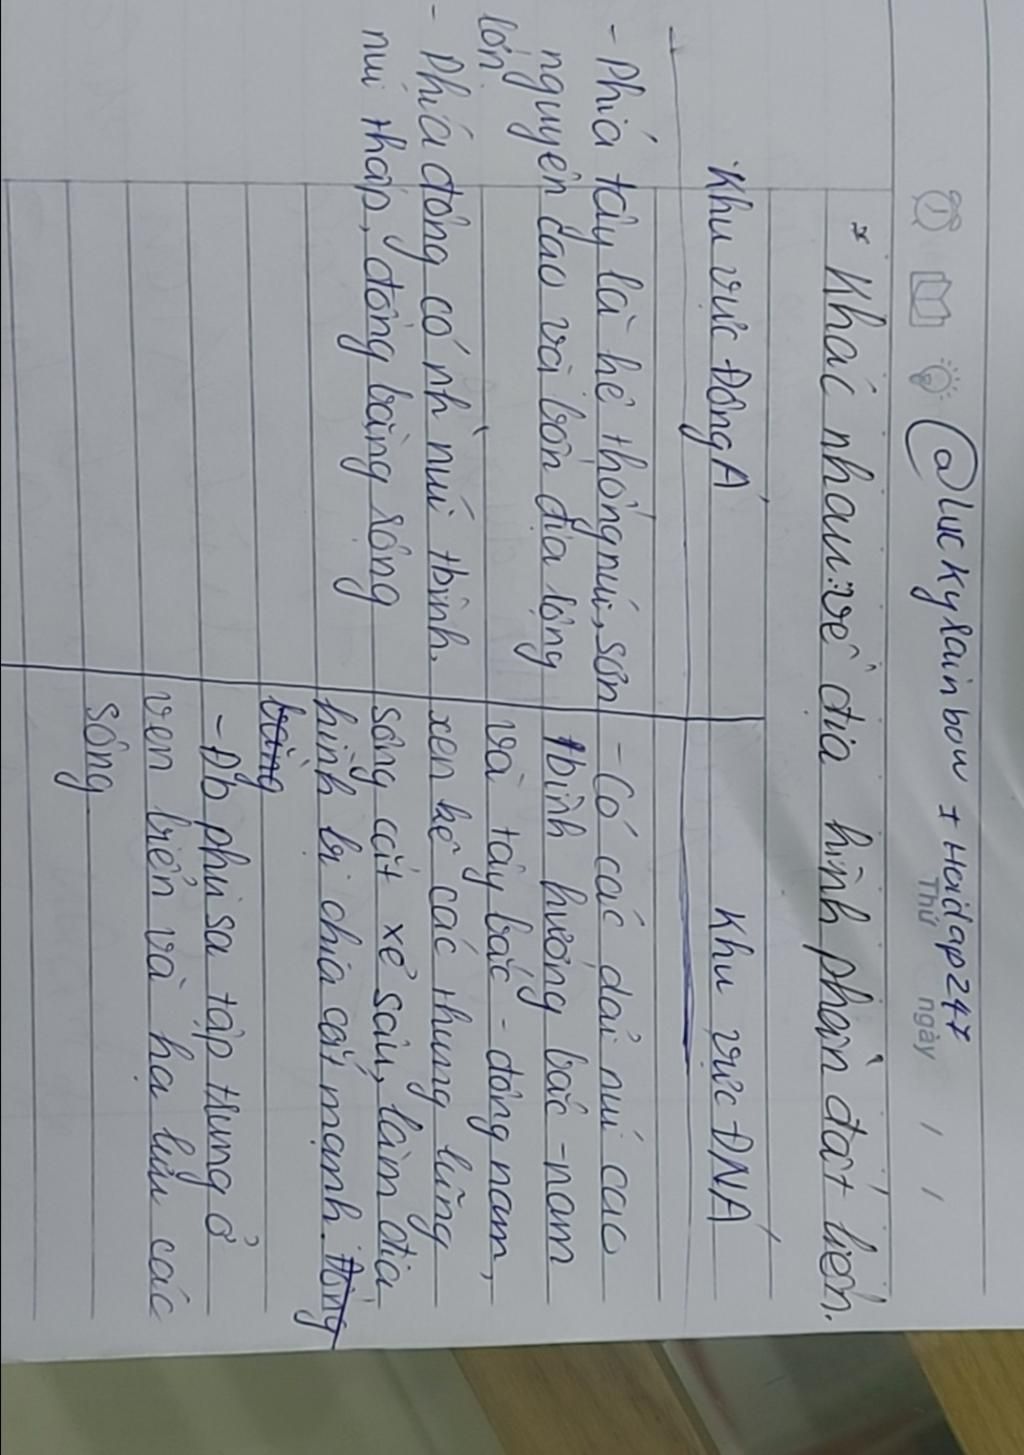 @luckyrainbow + Hoidap247
Thứ ngày / /
* Khác nhau về địa hình phần đất liền.
Khu vực Đông Á
- Phía tây là hệ thống núi, sơn
nguyên cao và bồn địa lộng
lớn.
- Phía đông có nh núi tbình,
núi thấp, đồng bằng sông
Khu vực ĐNÁ
- Có các dải núi cao
tbình hướng bắc - nam
và tây bắc - đông nam,
xen kẽ các thung lũng
sông cắt xẻ sâu, làm địa
hình bị chia cắt mạnh. Đồng
bằng
- Đb phù sa tập trung ở
ven biển và hạ lưu các
sông